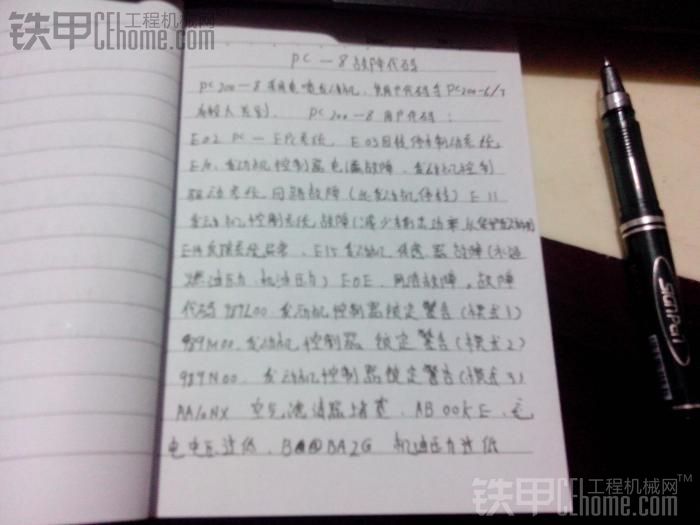 铁甲 工程机械网 CEhome.com
PC-8故障代码
PC200-8采用电喷发动机,使用户代码与PC200-6/7
有较大差别. PC200-8 用户代码:
E02 PC-EPC系统, E03回转停车制动系统,
E10, 发动机控制器电源故障, 发动机控制
驱动系统回路故障(此发动机停转) E11
发动机控制系统故障(减少输出功率
E14 反馈系统异常, E15 发动机传感器故障(水温
燃油压力、机油压力) E0E, 网络故障。故障
代码 987L00, 发动机控制器锁定警告(模式1)
989M00, 发动机控制器 锁定 警告(模式2)
989N00, 发动机控制器锁定警告(模式3)
AA10NX 空气滤清器堵塞, AB00KE, 充
电电压过低, B@BAZG 机油压力过低
SignPen
铁甲 工程机械网 CEhome.com